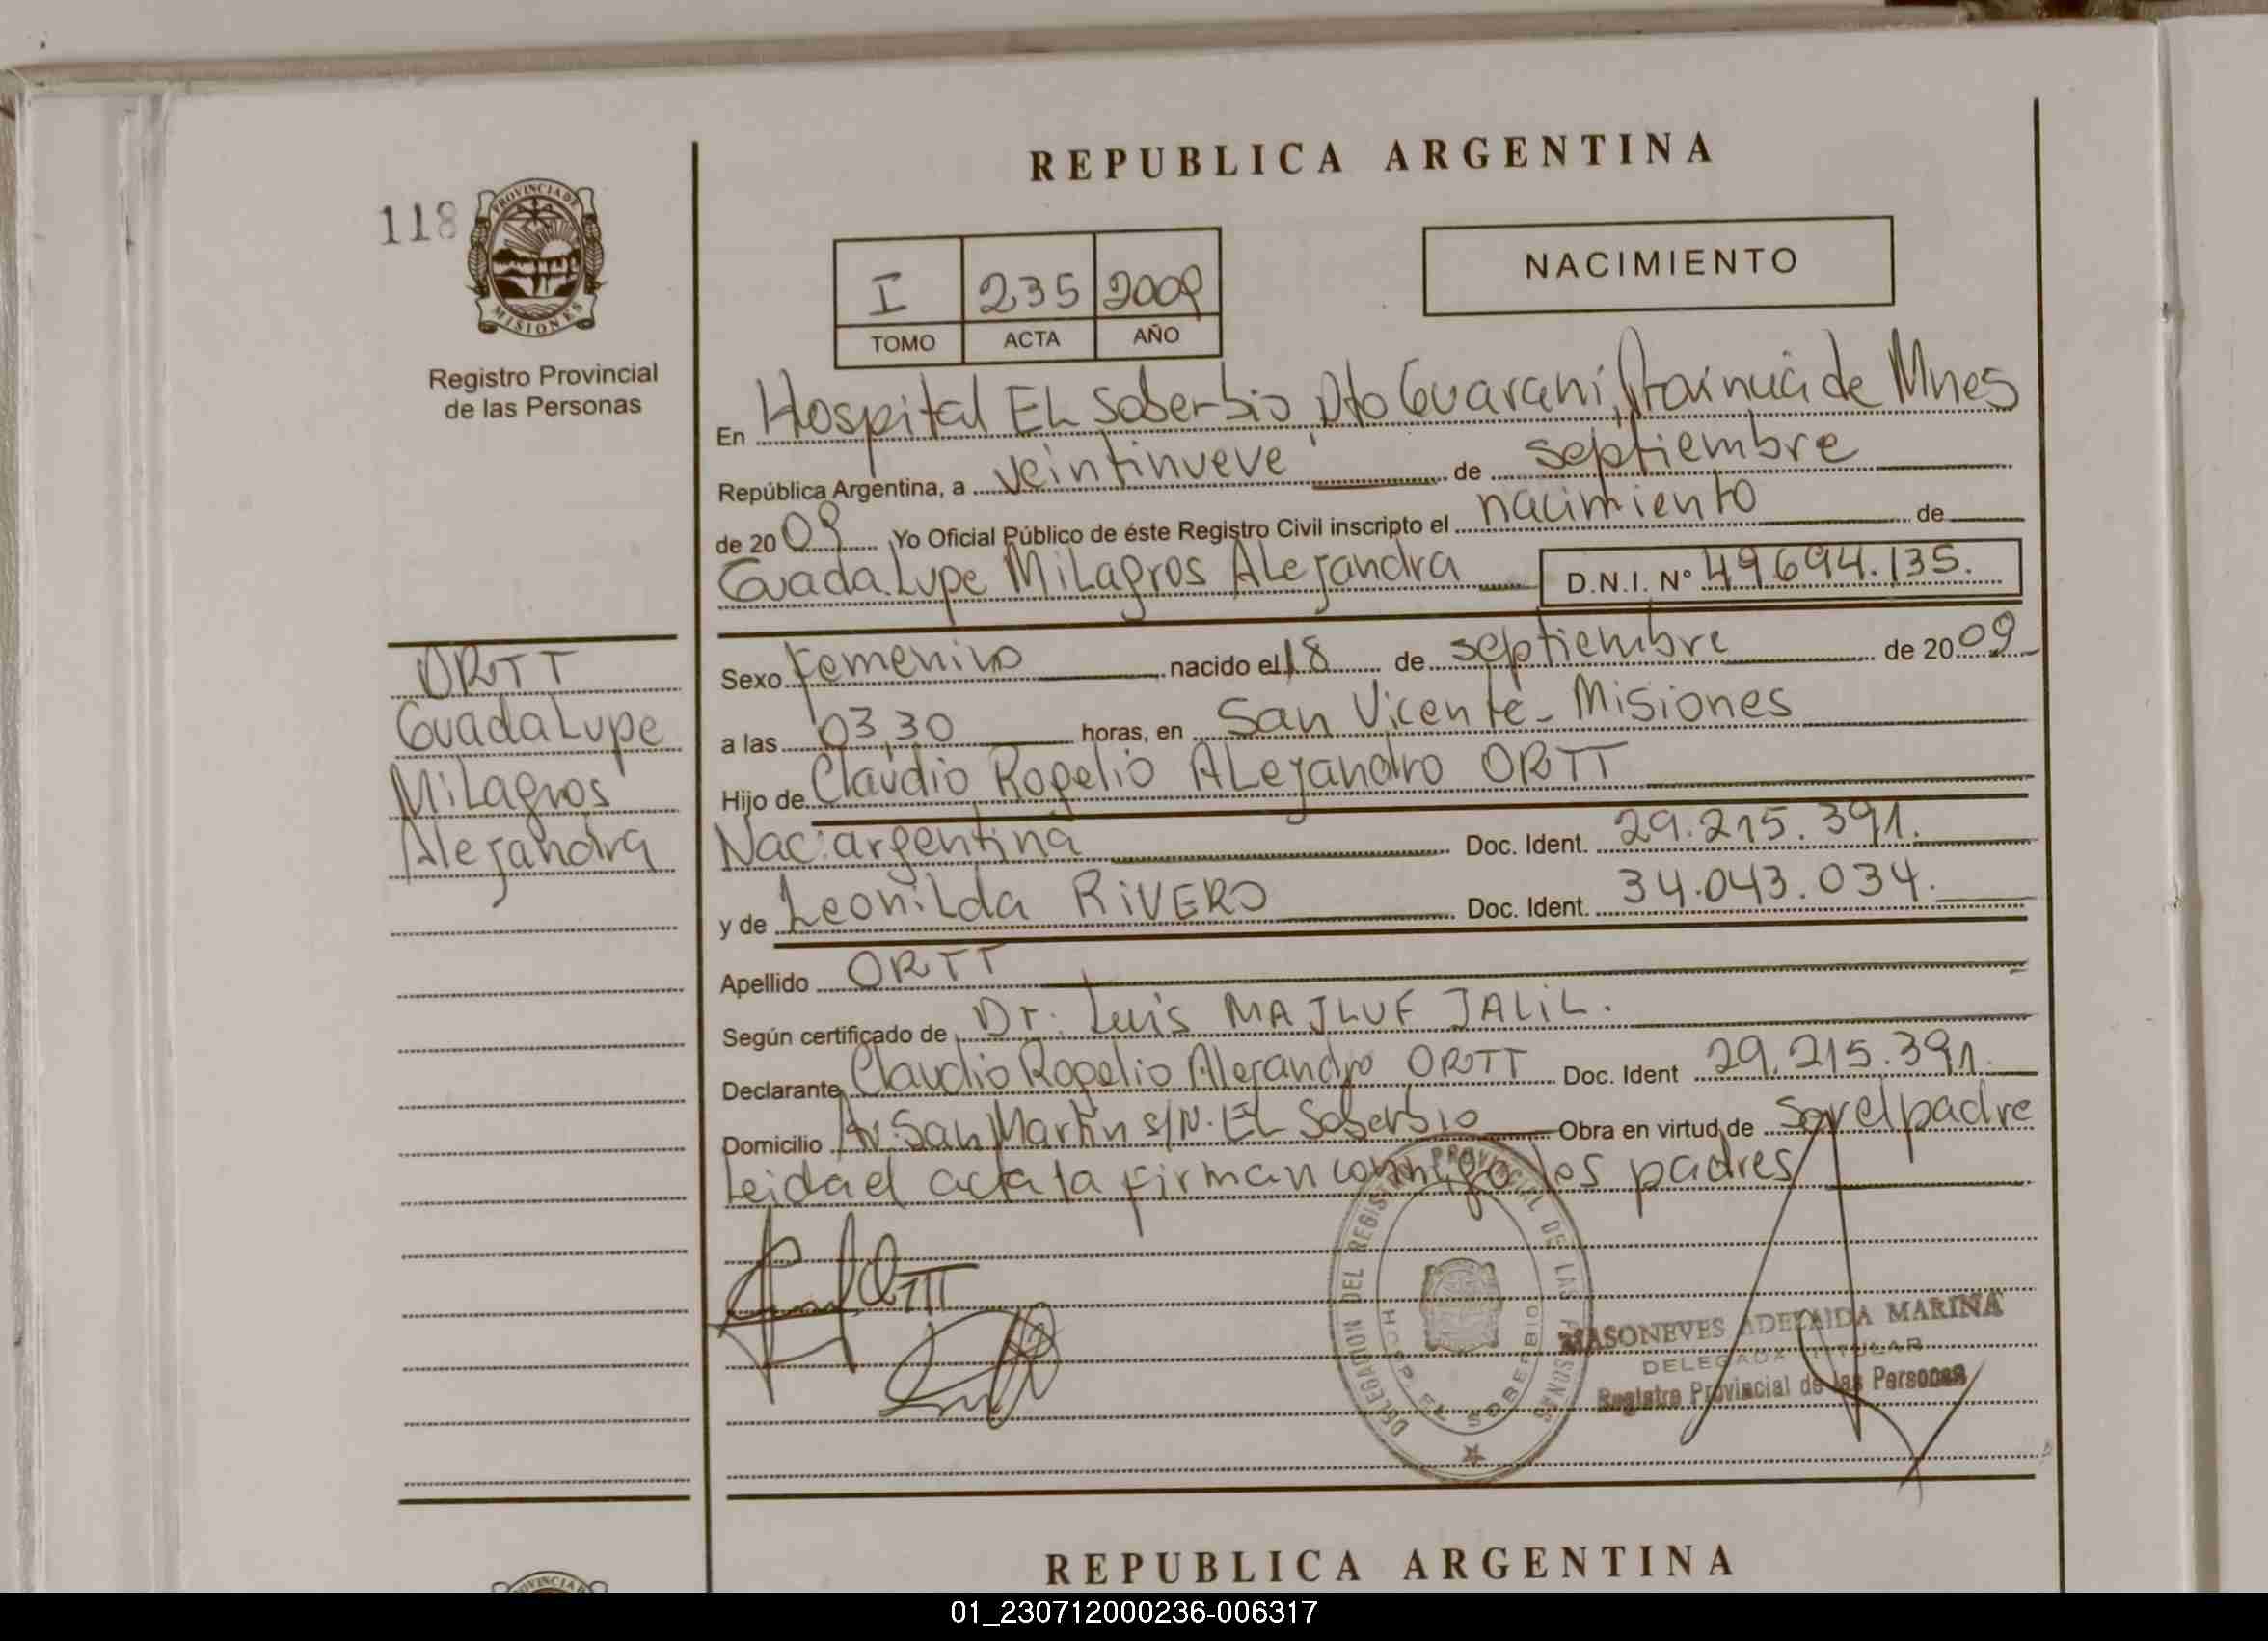 REPUBLICA ARGENTINA
118
PROVINCIA DE
MISIONES
Registro Provincial
de las Personas
I 235 2009
TOMO ACTA AÑO
NACIMIENTO
En Hospital EL Soberbio, Dto Guaraní, Provincia de Mnes
República Argentina, a veintinueve de septiembre
de 2009 Yo Oficial Público de éste Registro Civil inscripto el nacimiento de
Guadalupe Milagros Alejandra D.N.I. Nº 49694.135.
ORTT
Guadalupe
Milagros
Alejandra
Sexo femenino nacido el 18 de septiembre de 2009
a las 03,30 horas, en San Vicente - Misiones
Hijo de Claudio Rogelio Alejandro ORTT
Nac: argentina Doc. Ident. 29.215.391.
y de Leonilda RIVERO Doc. Ident. 34.043.034.
Apellido ORTT
Según certificado de Dr. Luis MAJLUF JALIL.
Declarante Claudio Rogelio Alejandro ORTT Doc. Ident 29.215.391.
Domicilio Av. San Martín s/N. EL Soberbio Obra en virtud de ser el padre
Leida el acta la firman conmigo los padres
ORTT
DELEGACION DEL REGISTRO PROVINCIAL DE LAS PERSONAS
HOSP. EL SOBERBIO
MASONEVES ADELAIDA MARINA
DELEGADA TITULAR
Registro Provincial de las Personas
REPUBLICA ARGENTINA
PROVINCIA
01_230712000236-006317